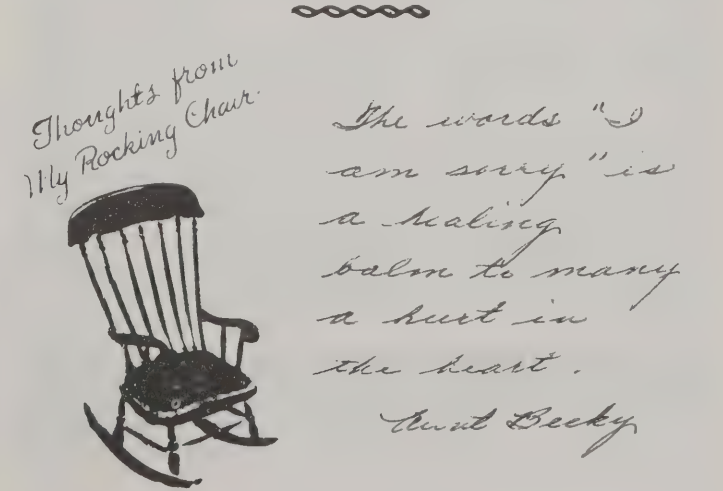 Thoughts from
My Rocking Chair.
The words "I
am sorry" is
a healing
balm to many
a hurt in
the heart.
Aunt Becky